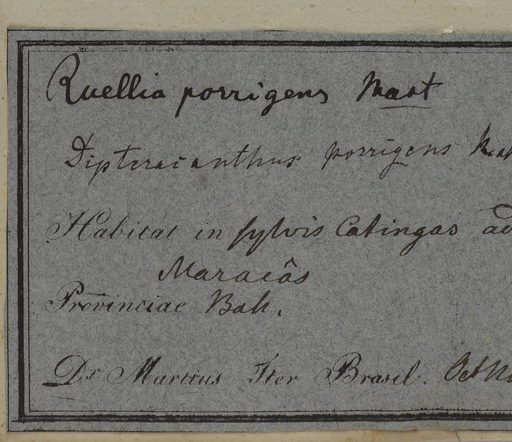 Ruellia porrigens Mart
Dipteracanthus porrigens
Habitat in sylvis Catingas ad
Maracâs
Provinciae Bah.
Dr. Martius Iter Brasil.